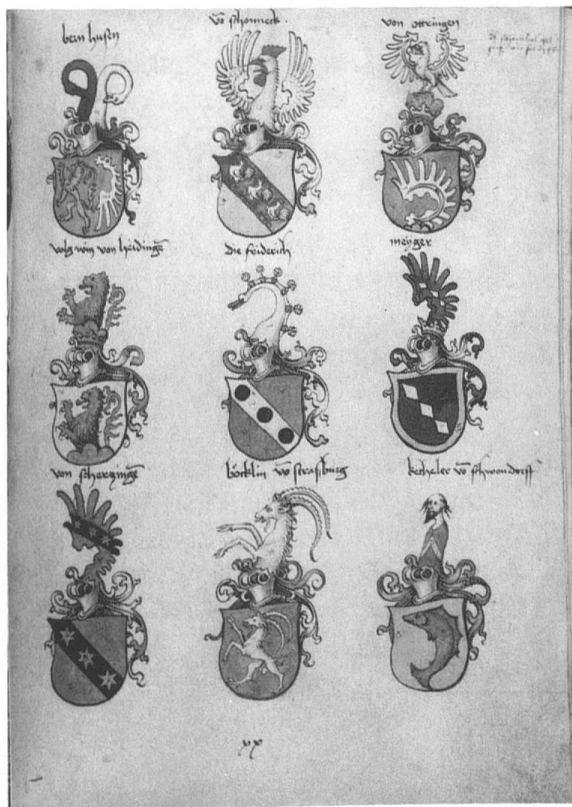 bern husen
vō schonneck
von ottringen
wolg win von heidingē
die friderich
meyger
von scherzingē
böcklin vō straßburg
kecheler vō schwondorff
xx